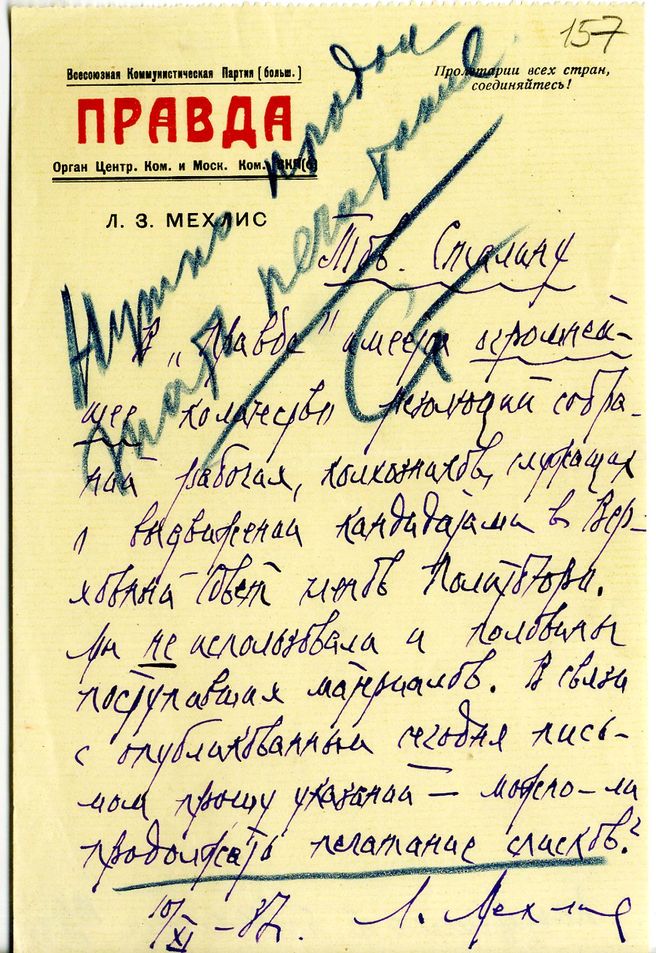 157
Всесоюзная Коммунистическая Партия (больш.)
Пролетарии всех стран,
соединяйтесь!
ПРАВДА
Орган Центр. Ком. и Моск. Ком. ВКП(б)
Л. З. МЕХЛИС
Нужно продол
жать печатание
Ст
Тов. Сталину
В „Правде" имеется огромней-
шее количество резолюций собра-
ний рабочих, колхозников, служащих
о выдвижении кандидатами в Вер-
ховный Совет членов Политбюро.
Мы не использовали и половины
поступавших материалов. В связи
с опубликованным сегодня пись-
мом прошу указаний — можно-ли
продолжать печатание списков?
10/XI – 37.
Л. Мехлис